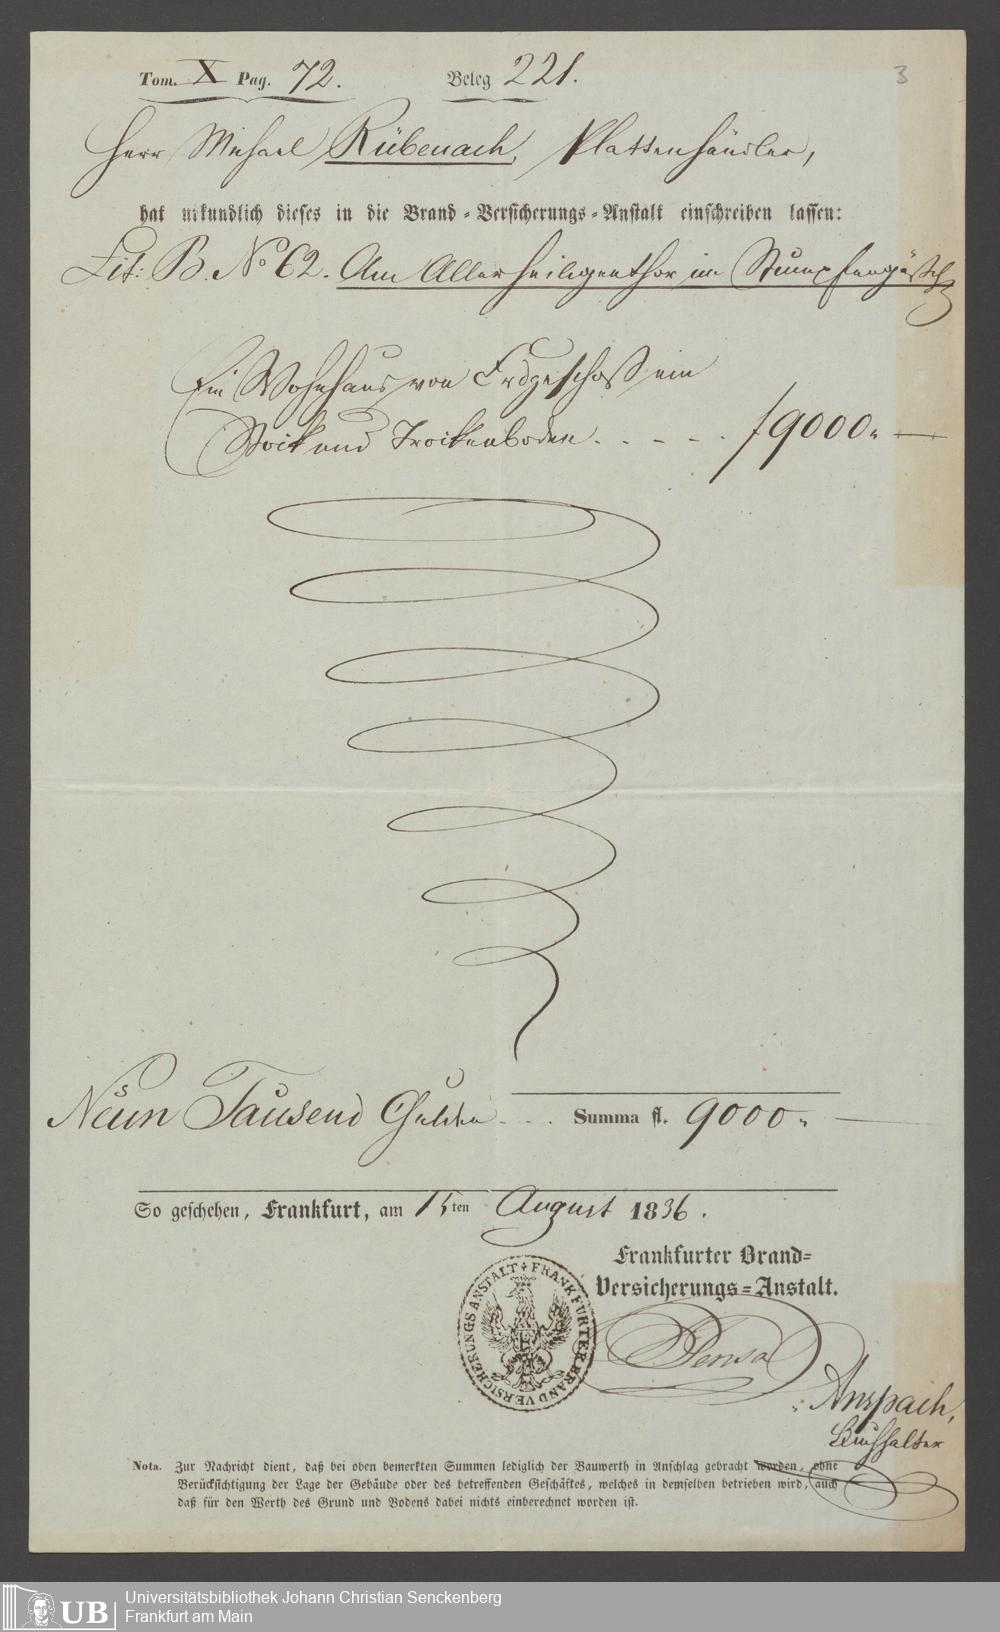 Tom. X Pag. 72. Beleg 221.
3
Herr Michael Rübenach, Plattenhändler,
hat urkundlich dieses in die Brand-Versicherungs-Anstalt einschreiben lassen:
Lit: B. No 62. Am Allerheiligenthor im Stumpfengäßch
Ein Wohnhaus von Erdgeschoß ein
Stock und Trockenboden . . - - . f 9000„ —
Neun Tausend Gulden - . . Summa fl. 9000 „ —
So geschehen, Frankfurt, am 15ten August 1836.
Frankfurter Brand-
Versicherungs-Anstalt.
FRANKFURTER BRAND VERSICHERUNGS ANSTALT
Anspach,
Buchhalter
Nota. Zur Nachricht dient, daß bei oben bemerkten Summen lediglich der Bauwerth in Anschlag gebracht worden, ohne
Berücksichtigung der Lage der Gebäude oder des betreffenden Geschäftes, welches in demselben betrieben wird, auch
daß für den Werth des Grund und Bodens dabei nichts einberechnet worden ist.
UB Universitätsbibliothek Johann Christian Senckenberg
Frankfurt am Main